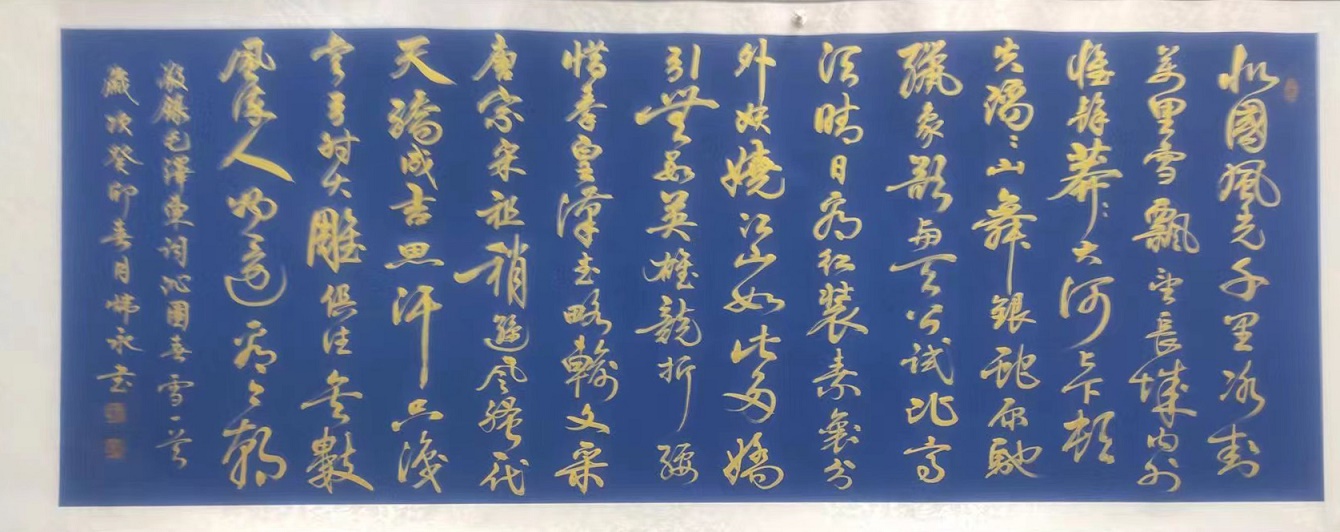 北國風光千里冰封
萬里雪飄望長城內外
惟餘莽〻大河上下頓
失滔〻山舞銀蛇原馳
臘象欲與天公試比高
須晴日看紅裝素裹分
外妖嬈江山如此多嬌
引無數英雄競折腰
惜秦皇漢武略輸文采
唐宗宋祖稍遜風騷一代
天驕成吉思汗只識
彎弓射大雕俱往矣數
風流人物還看今朝
敬錄毛澤東詞沁園春雪一首
歲次癸卯春月永書